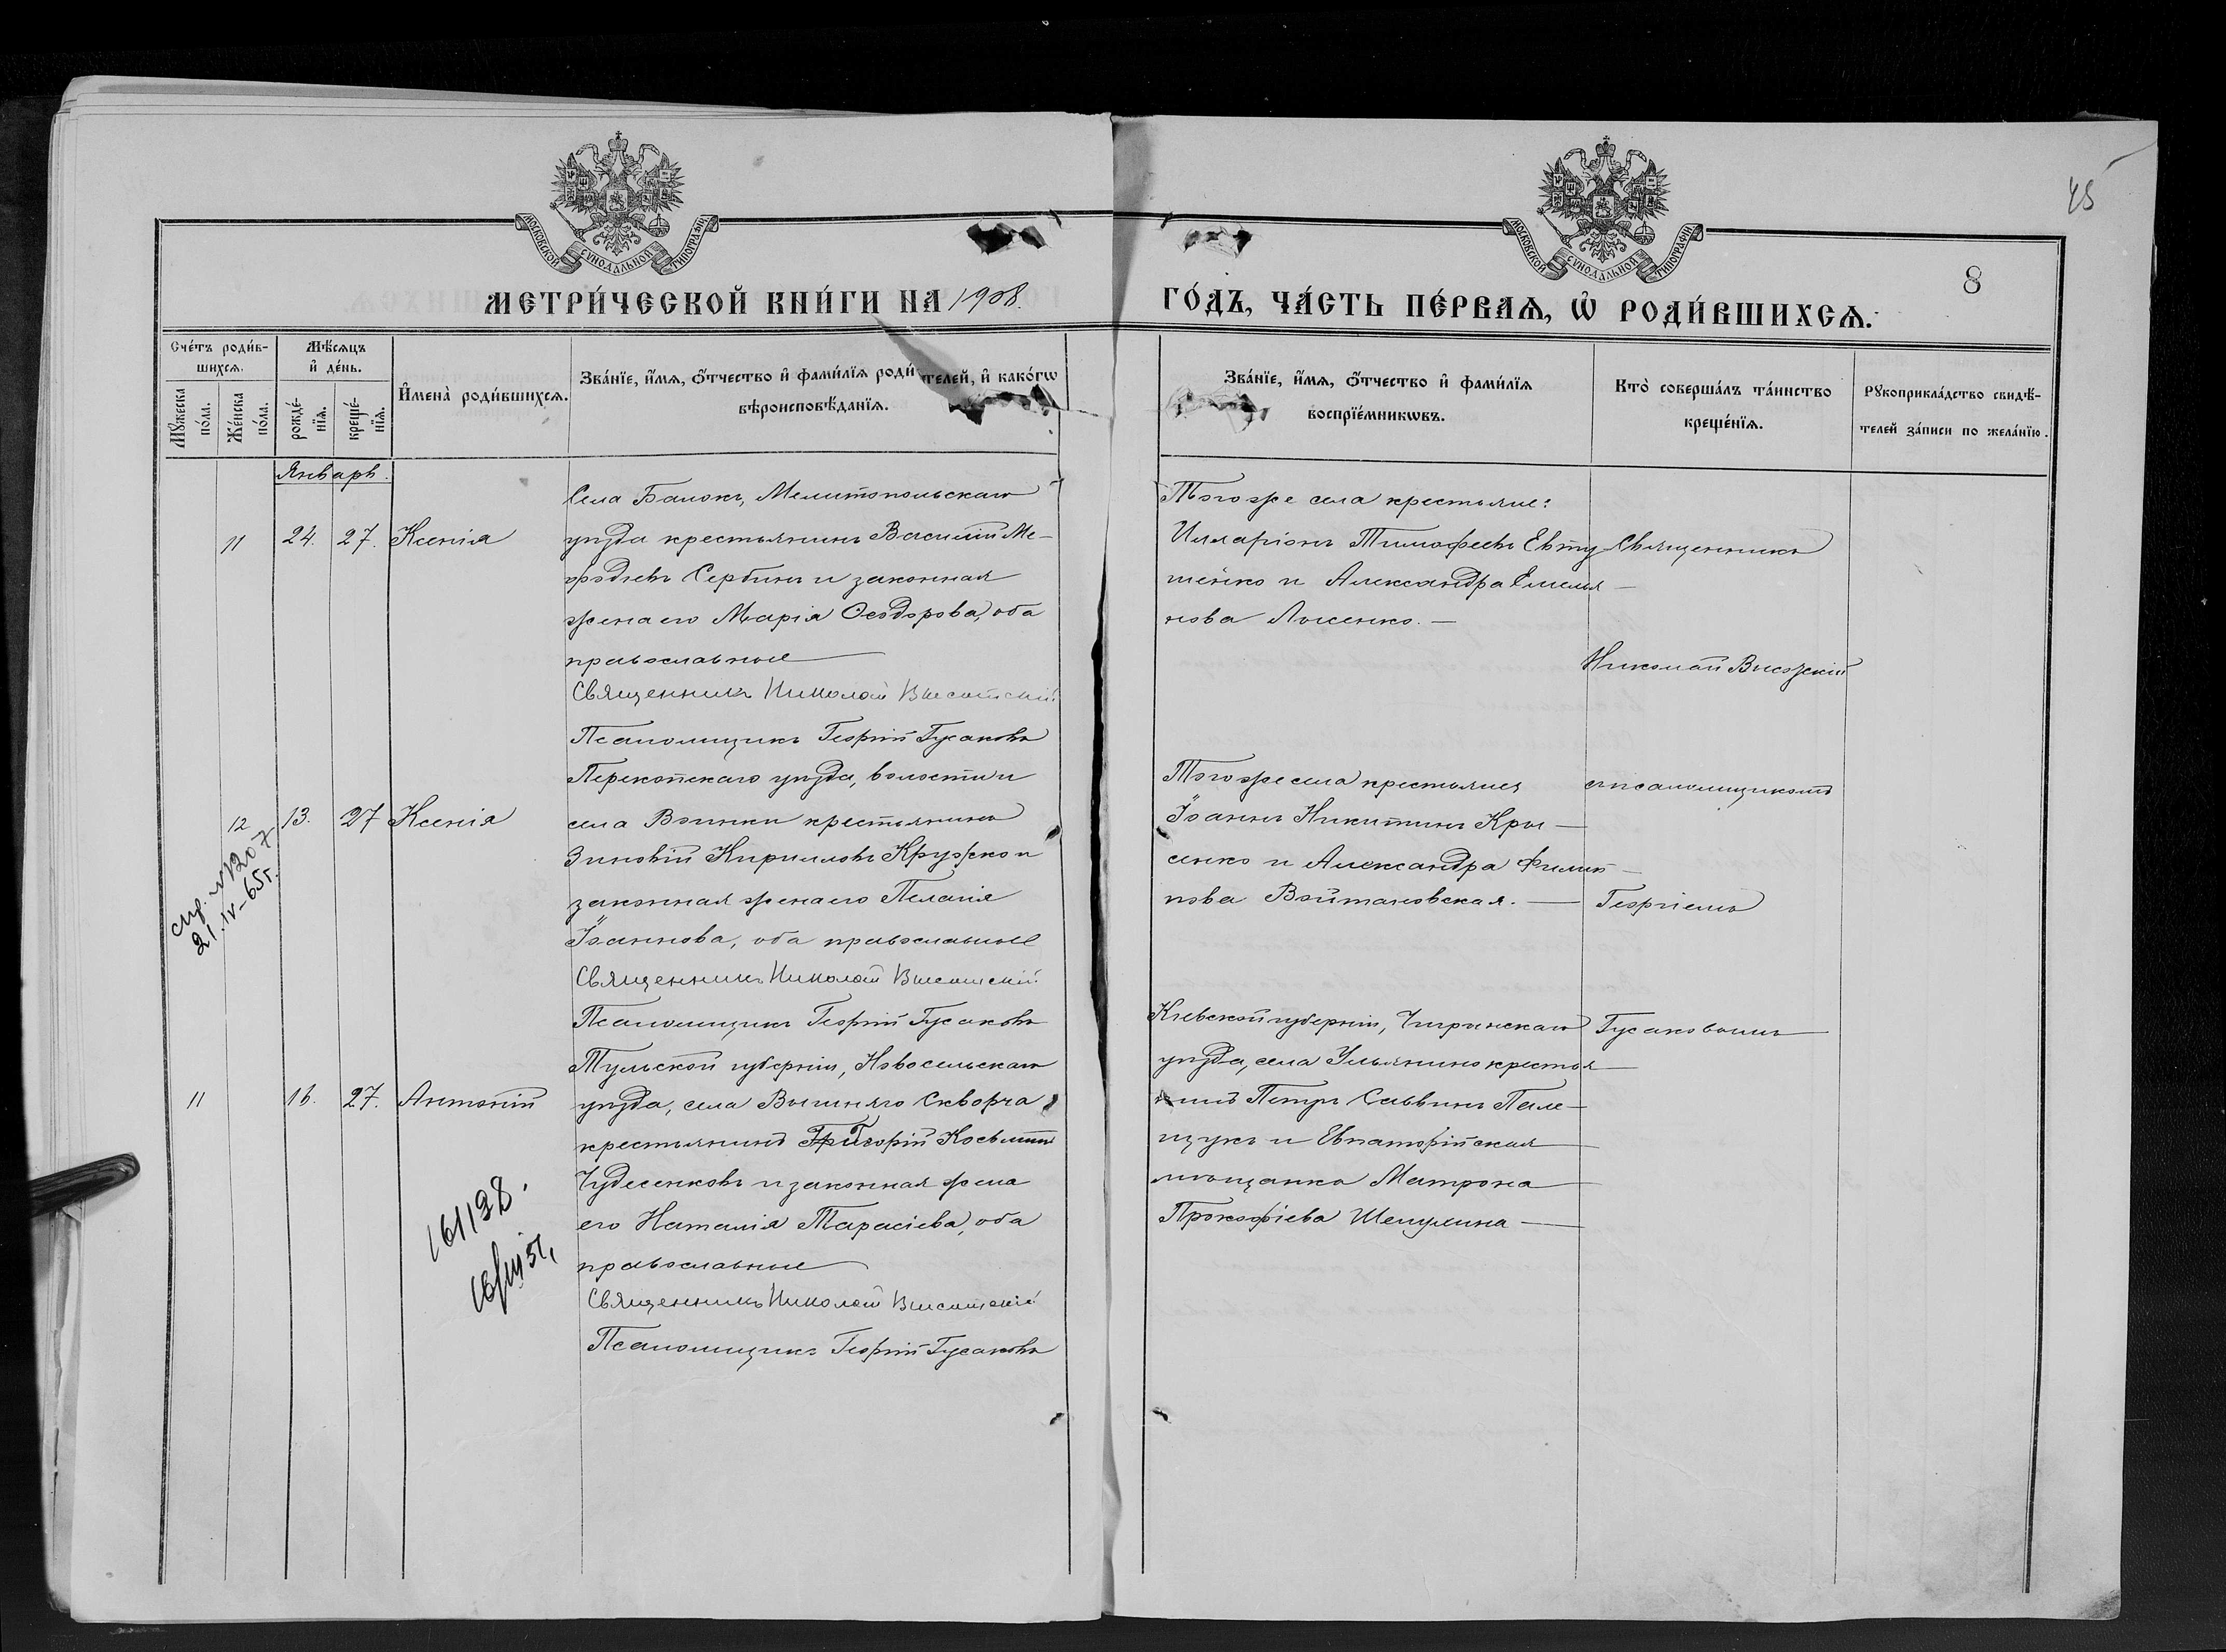 МОСКОВСКОЙ СУНОДАЛЬНОЙ ТИПОГРАФІИ
МОСКОВСКОЙ СУНОДАЛЬНОЙ ТИПОГРАФІИ
45
8
МЕТРИ́ЧЕСКОЙ КНИ́ГИ НА 1908.
ГО́ДЪ, ЧА́СТЬ ПЕ́РВАѦ, Ѡ҆ РОДИ́ВШИХСѦ.
Сче́тъ роди́в-
шихсѧ.
Мꙋ́жеска
по́ла.
Же́нска
по́ла.
Мѣ́сѧцъ
и҆ де́нь.
рожде́-
нїѧ.
креще́-
нїѧ.
И҆мена̀ роди́вшихсѧ.
Зва́нїе, и҆́мѧ, ѻ҆́тчество и҆ фами́лїѧ роди́телей, и҆ како́гѡ
вѣроисповѣ́данїѧ.
Зва́нїе, и҆́мѧ, ѻ҆́тчество и҆ фами́лїѧ
воспрїе́мникѡвъ.
Кто̀ соверша́лъ та́инство
креще́нїѧ.
Рꙋкоприкла́дство свидѣ́-
телей за́писи по жела́нїю.
Январь.
11 24. 27. Ксенія
Села Балокъ, Мелитопольскаго
уѣзда крестьянинъ Василій Ме-
ѳодіевъ Сербинъ и законная
жена его Марія Ѳеодорова, оба
православные
Священникъ Николай Высотскій
Псаломщикъ Георгій Гусаковъ
Того же села крестьяне:
Илларіонъ Тимофеевъ Евту
шенко и Александра Емелья-
нова
Священникъ
Николай Высотскій
съ псаломщикомъ
Георгіемъ
Гусаковымъ
12 13. 27 Ксенія
спр. №1207
21.IV-65г.
Перекопскаго уѣзда, волости и
села Воинки крестьянинъ
Зиновій Кирилловъ Кружко и
законная жена его Пелагія
Іоаннова, оба православные
Священникъ Николай Высотскій
Псаломщикъ Георгій Гусаковъ
Того же села крестьяне
Іоаннъ Никитинъ Кры-
сенко и Александра Филип-
пова Войтановская.
11 16. 27. Антоній
161138.
Тульской губерніи, Новосельскаго
уѣзда, села Вышняго Скворча
крестьянинъ Григорій Косьминъ
Чудесенковъ и законная жена
его Наталія Тарасіева, оба
православные
Священникъ Николай Высотскій
Псаломщикъ Георгій Гусаковъ
Кіевской губерніи, Чигринскаго
уѣзда, села Ульянино крестья-
нинъ Петръ Саввинъ Пале-
щукъ и Евпаторійская
мѣщанка Матрона
Прокофіева Шепулина